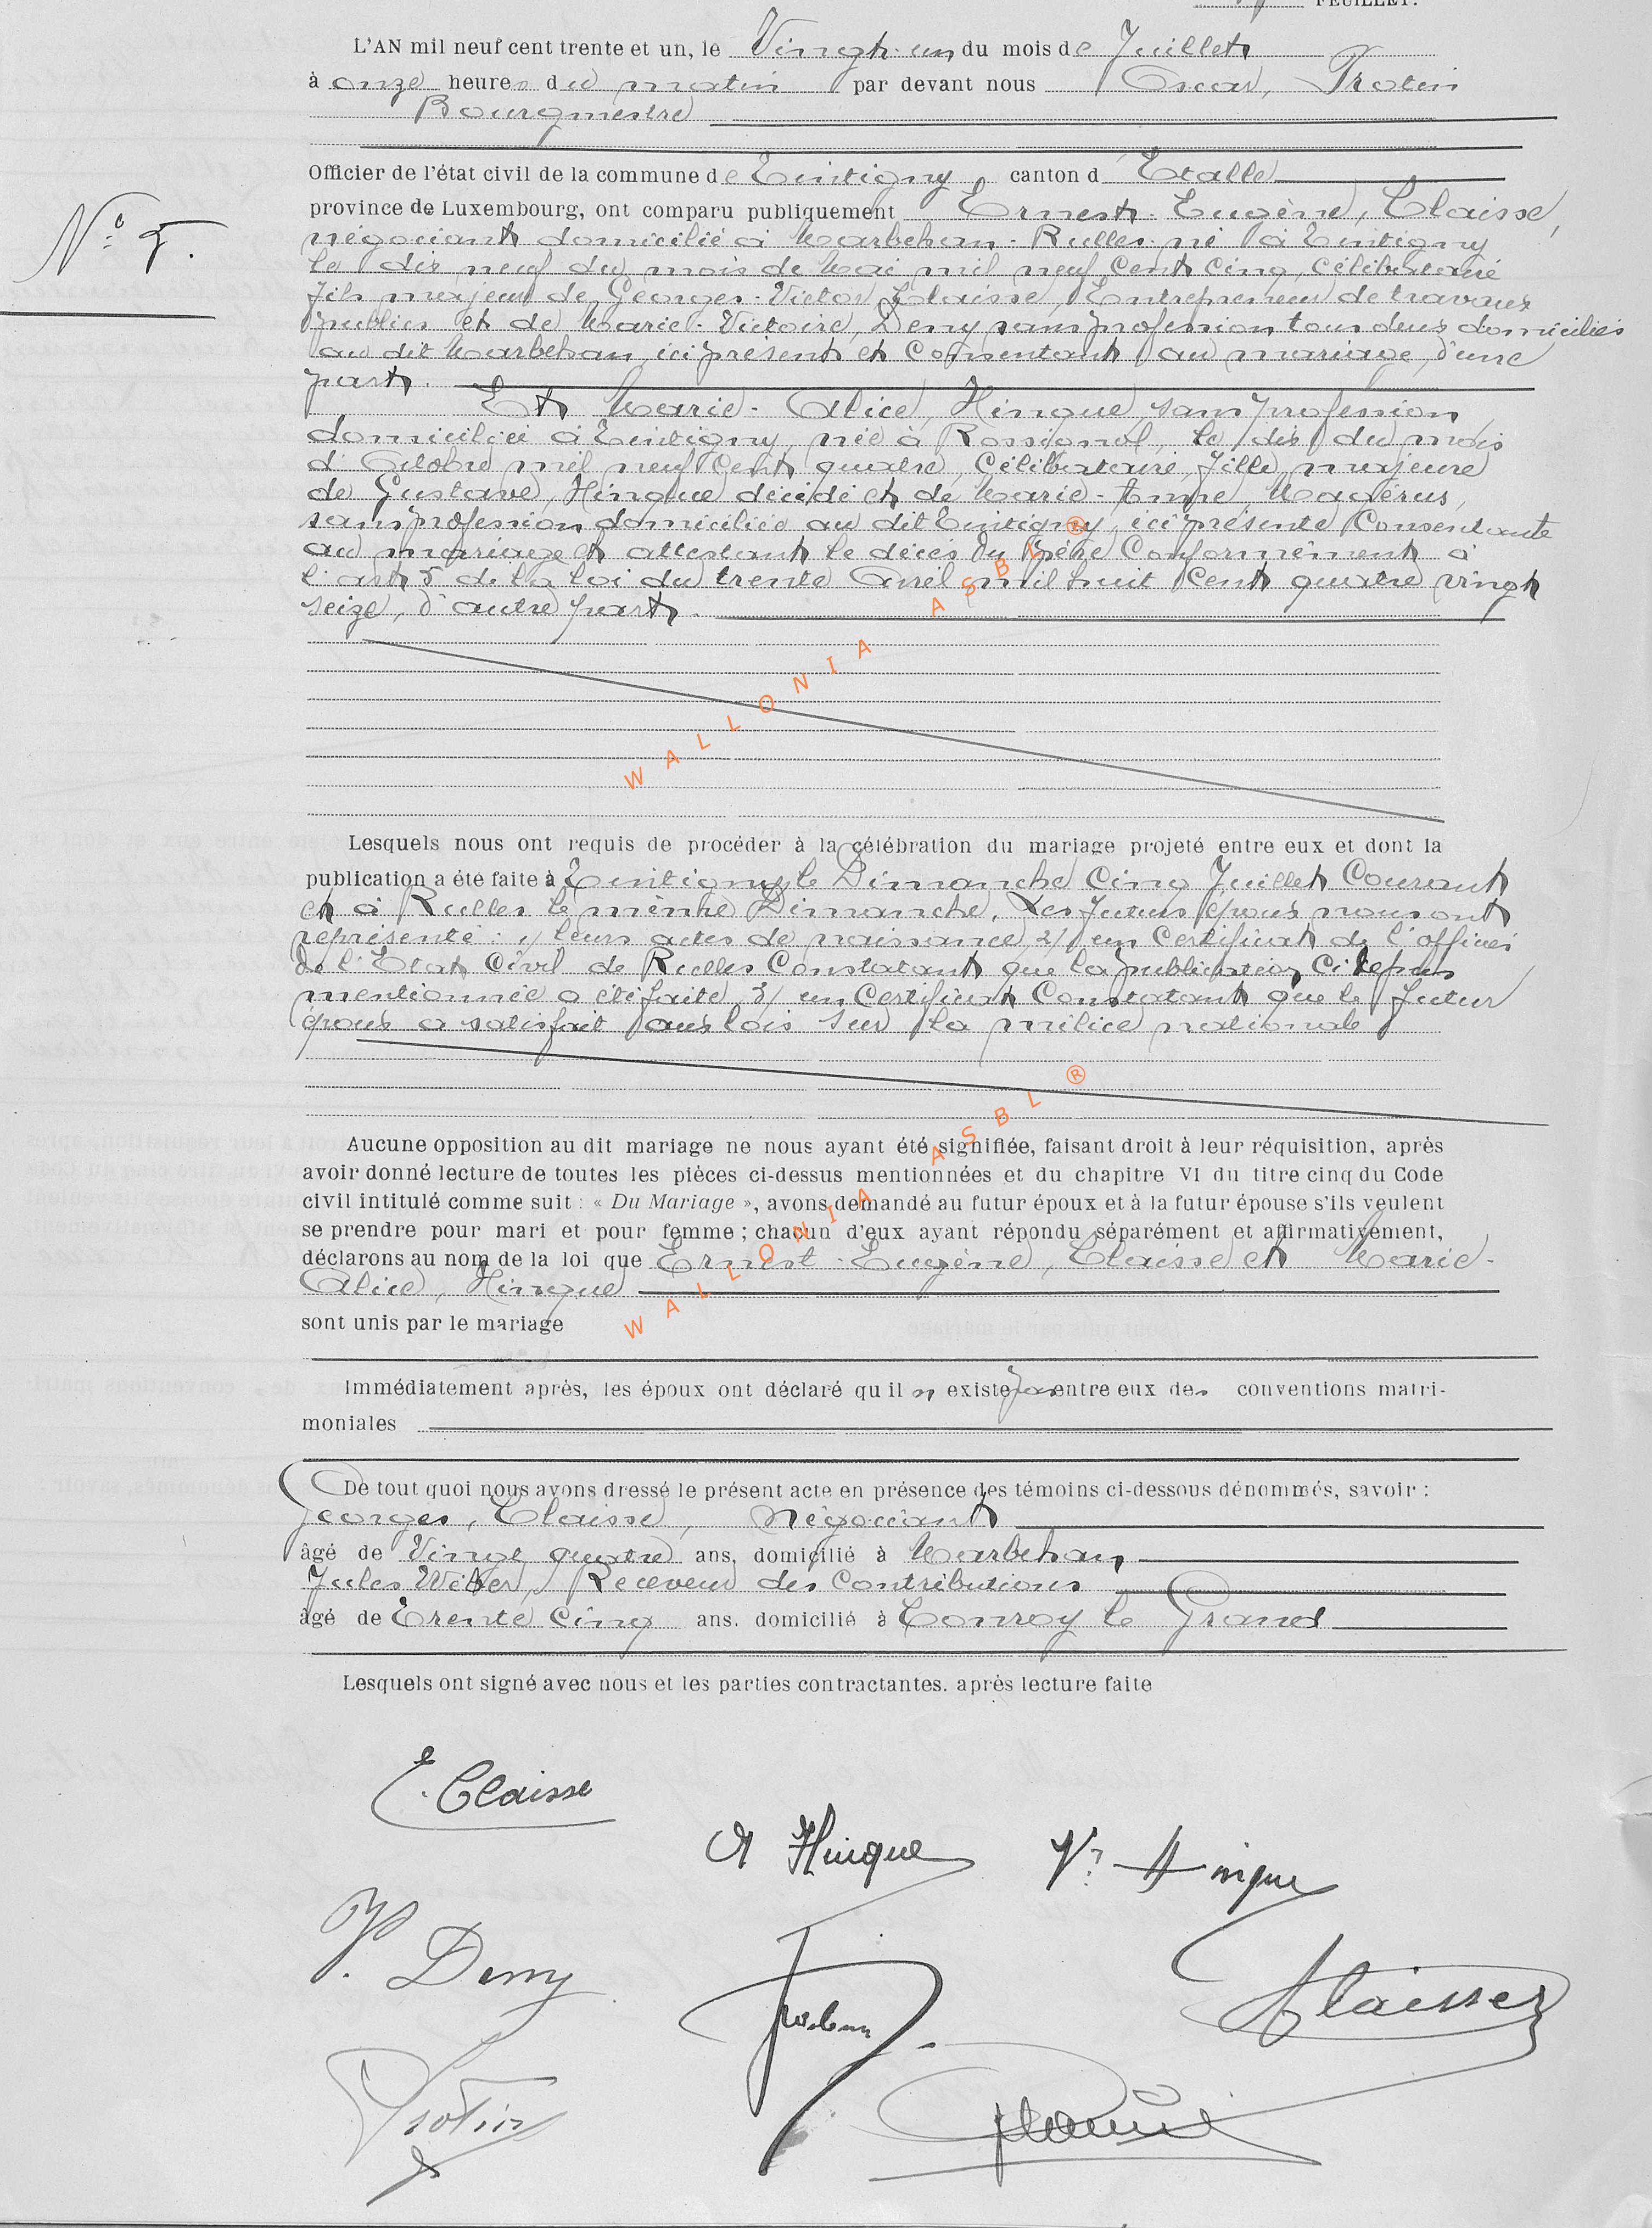 FEUILLET.
L'AN mil neuf cent trente et un, le Vingt-un du mois de Juillet
à onze heures du matin par devant nous Oscar, Protin
Bourgmestre
Officier de l'état civil de la commune de Tintigny canton d Etalle
province de Luxembourg, ont comparu publiquement Ernest-Eugène, Claisse,
N° 5.
négociant domicilié à Marbehan-Rulles né à Tintigny
le dix neuf du mois de Mai mil neuf cent cinq, célibataire
fils majeur de Georges-Victor Claisse, Entrepreneur de travaux
publics et de Marie-Victoire, Demy sans profession tous deux domiciliés
au dit Marbehan, ici présent et consentant au mariage, d'une
part.
Et Marie-Alice, Hinque sans profession
domiciliée à Tintigny, née à Rossignol, le dix du mois
d'Octobre mil neuf cent quatre, Célibataire, fille majeure
de Gustave, Hinque décédé et de Marie-Anne, Magérus,
sans profession domiciliée au dit Tintigny, ici présente Consentante
au mariage et attestant le décès du père Conformément à
l'art 5 de la loi du trente Avril mil huit cent quatre vingt
seize, d'autre part.
WALLONIA ASBL ®
Lesquels nous ont requis de procéder à la célébration du mariage projeté entre eux et dont la
publication a été faite à Tintigny le Dimanche Cinq Juillet Courant
et à Rulles le même Dimanche. Les futurs époux nous ont
représenté : 1/ leurs actes de naissance, 2/ un Certificat de l'officier
de l'Etat Civil de Rulles Constatant que la publication Ci
mentionnée a été faite, 3/ un Certificat Constatant que le futur
époux a satisfait aux lois sur la milice nationale
WALLONIA ASBL ®
Aucune opposition au dit mariage ne nous ayant été signifiée, faisant droit à leur réquisition, après
avoir donné lecture de toutes les pièces ci-dessus mentionnées et du chapitre VI du titre cinq du Code
civil intitulé comme suit : « Du Mariage », avons demandé au futur époux et à la futur épouse s'ils veulent
se prendre pour mari et pour femme ; chacun d'eux ayant répondu séparément et affirmativement,
déclarons au nom de la loi que Ernest-Eugène, Claisse et Marie-
Alice, Hinque
sont unis par le mariage
Immédiatement après, les époux ont déclaré qu il n existe pas entre eux des conventions matri-
moniales
De tout quoi nous avons dressé le présent acte en présence des témoins ci-dessous dénommés, savoir :
Georges, Claisse, Négociant
âgé de Vingt quatre ans, domicilié à Marbehan,
Jules Weber, Receveur des Contributions
âgé de Trente Cinq ans. domicilié à Tonroy le Grand
Lesquels ont signé avec nous et les parties contractantes. après lecture faite
E. Claisse
A Hinque
Ve Hinque
V. Demy
Claisse
Protin